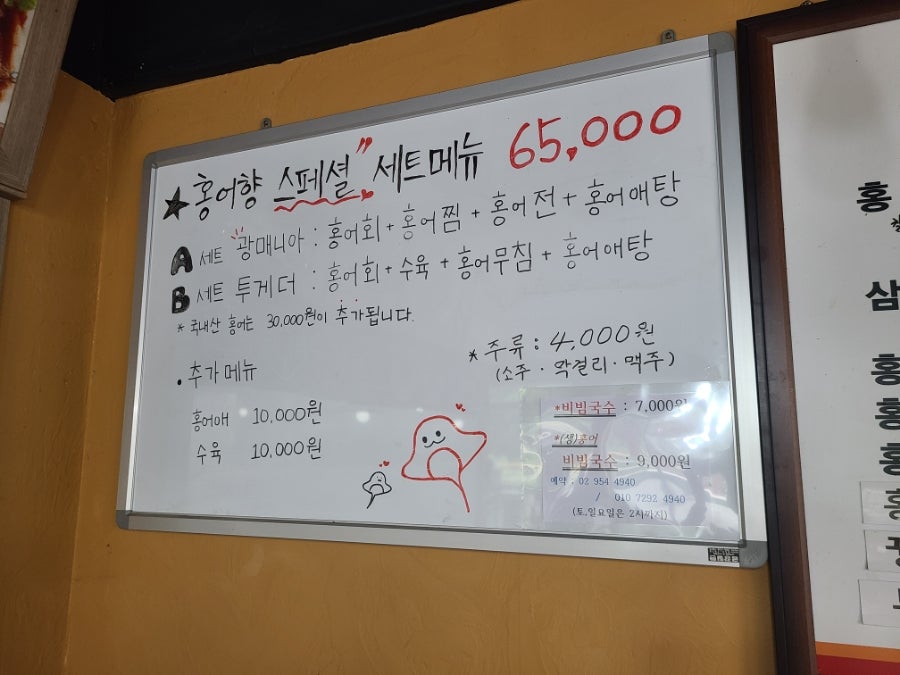 ★ 홍어향 스페셜 세트메뉴 65,000
A 세트 광매니아 : 홍어회 + 홍어찜 + 홍어전 + 홍어애탕
B 세트 투게더 : 홍어회 + 수육 + 홍어무침 + 홍어애탕
* 국내산 홍어는 30,000원이 추가됩니다.
* 주류 : 4,000원
(소주 · 막걸리 · 맥주)
• 추가메뉴
홍어애 10,000원
수육 10,000원
*비빔국수 : 7,000원
*(생)홍어
비빔국수 : 9,000원
예약 : 02 954 4940
/ 010 7292 4940
(토.일요일은 2시까지)
홍
삼
홍
홍
홍